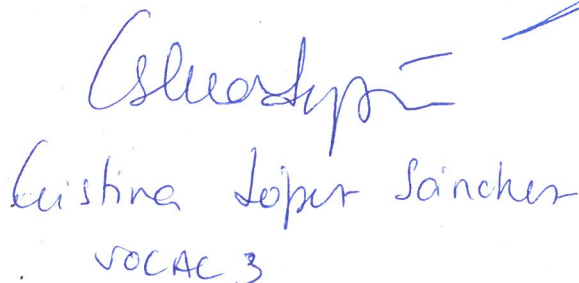 Cristina López Sánchez
VOCAL 3